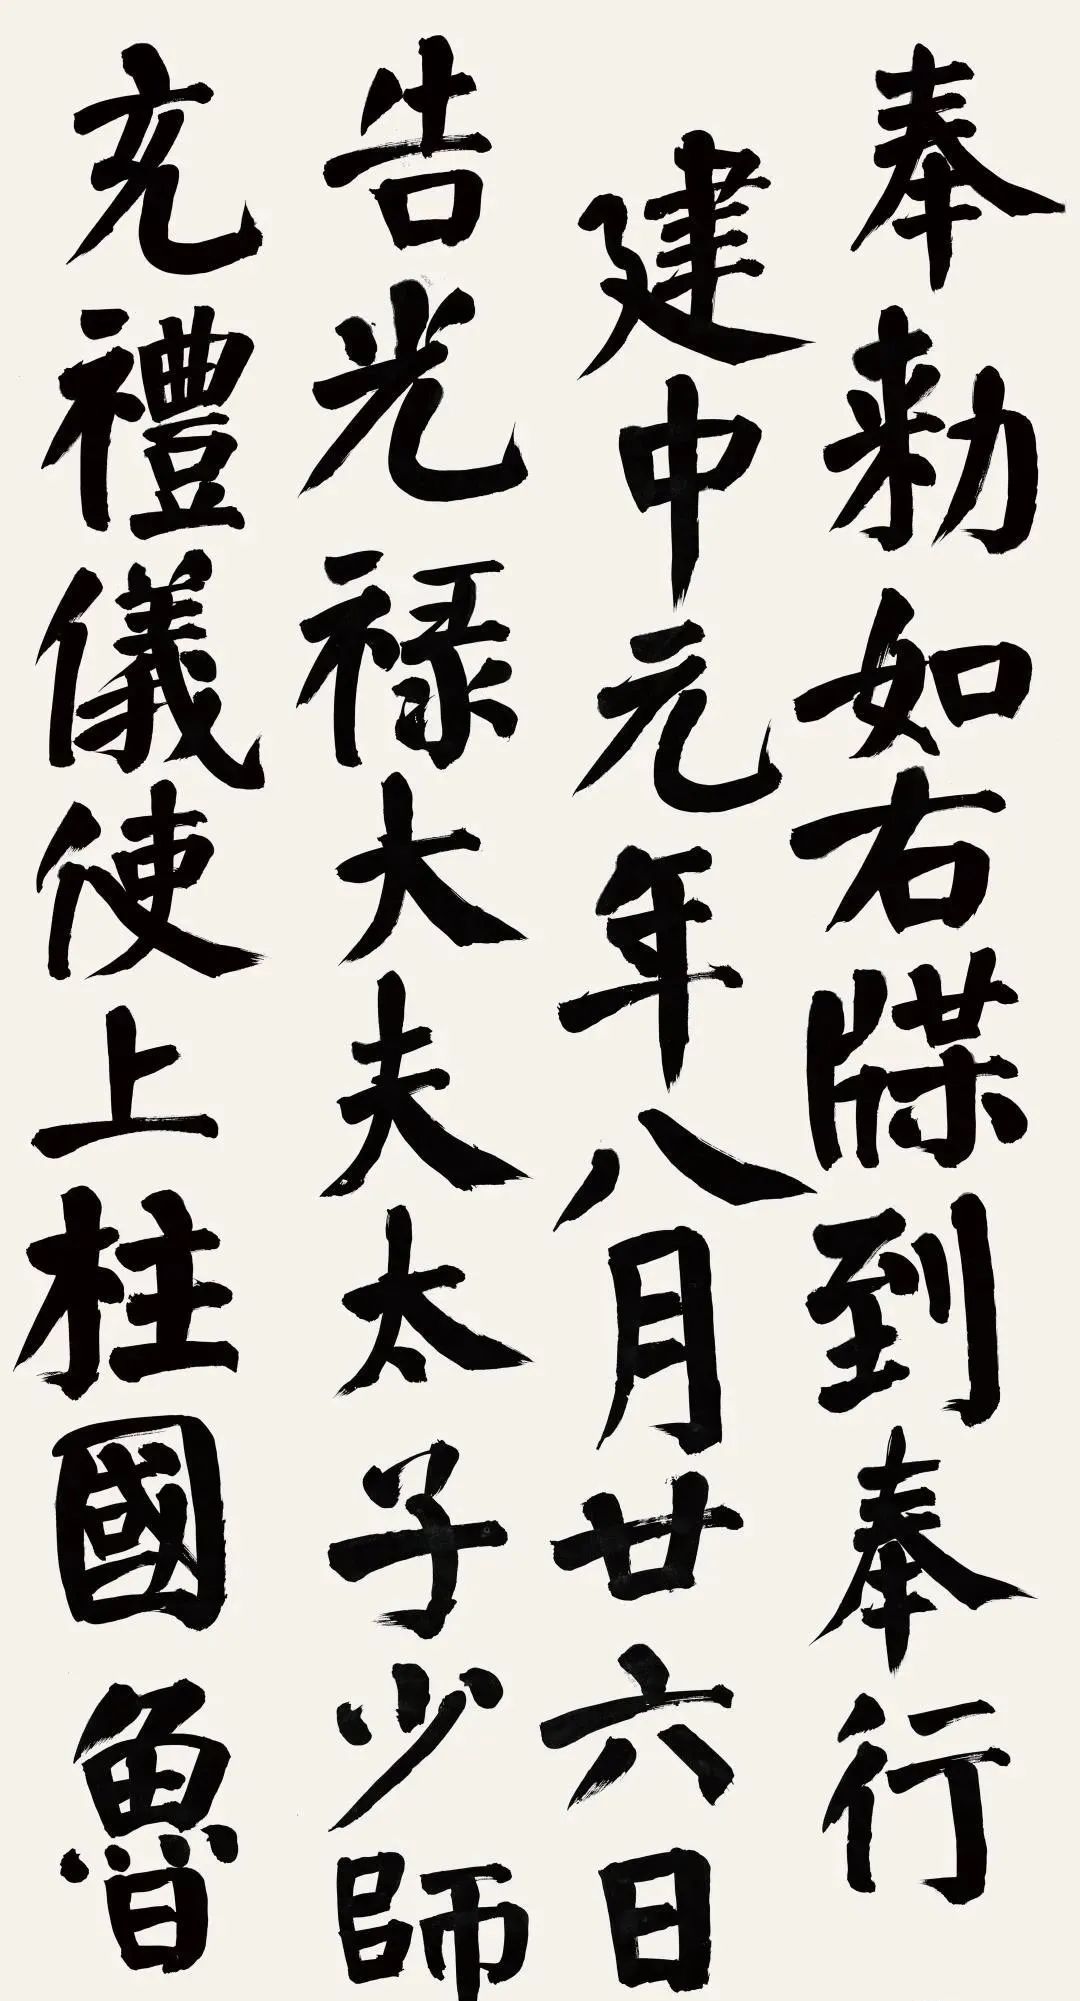 奉勑如右牒到奉行
建中元年八月廿六日
告光禄大夫太子少師
充禮儀使上柱國魯